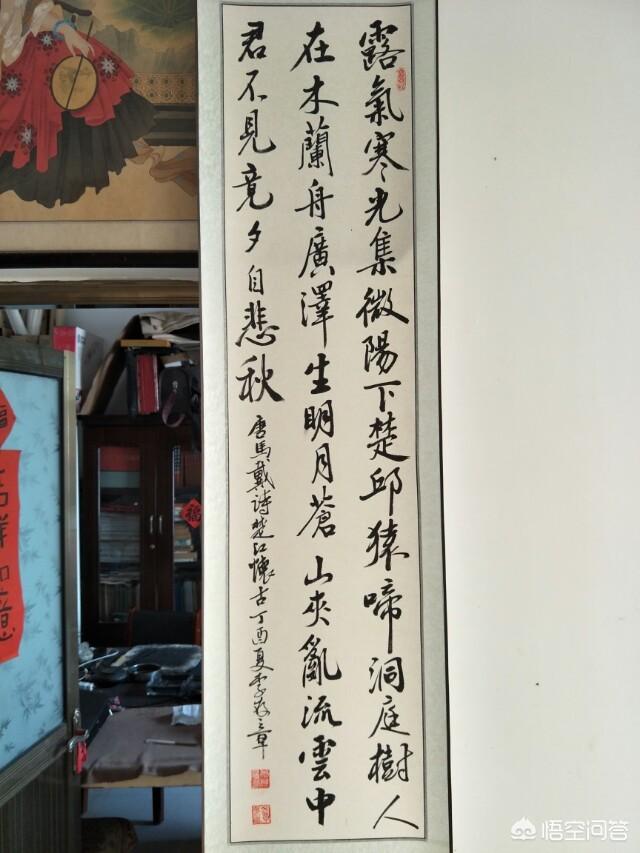 露氣寒光集微陽下楚邱猿啼洞庭樹人
在木蘭舟廣澤生明月蒼山夾亂流雲中
君不見竟夕自悲秋
唐馬戴詩楚江懷古丁酉夏李
福
吉祥如意
福
悟空问答